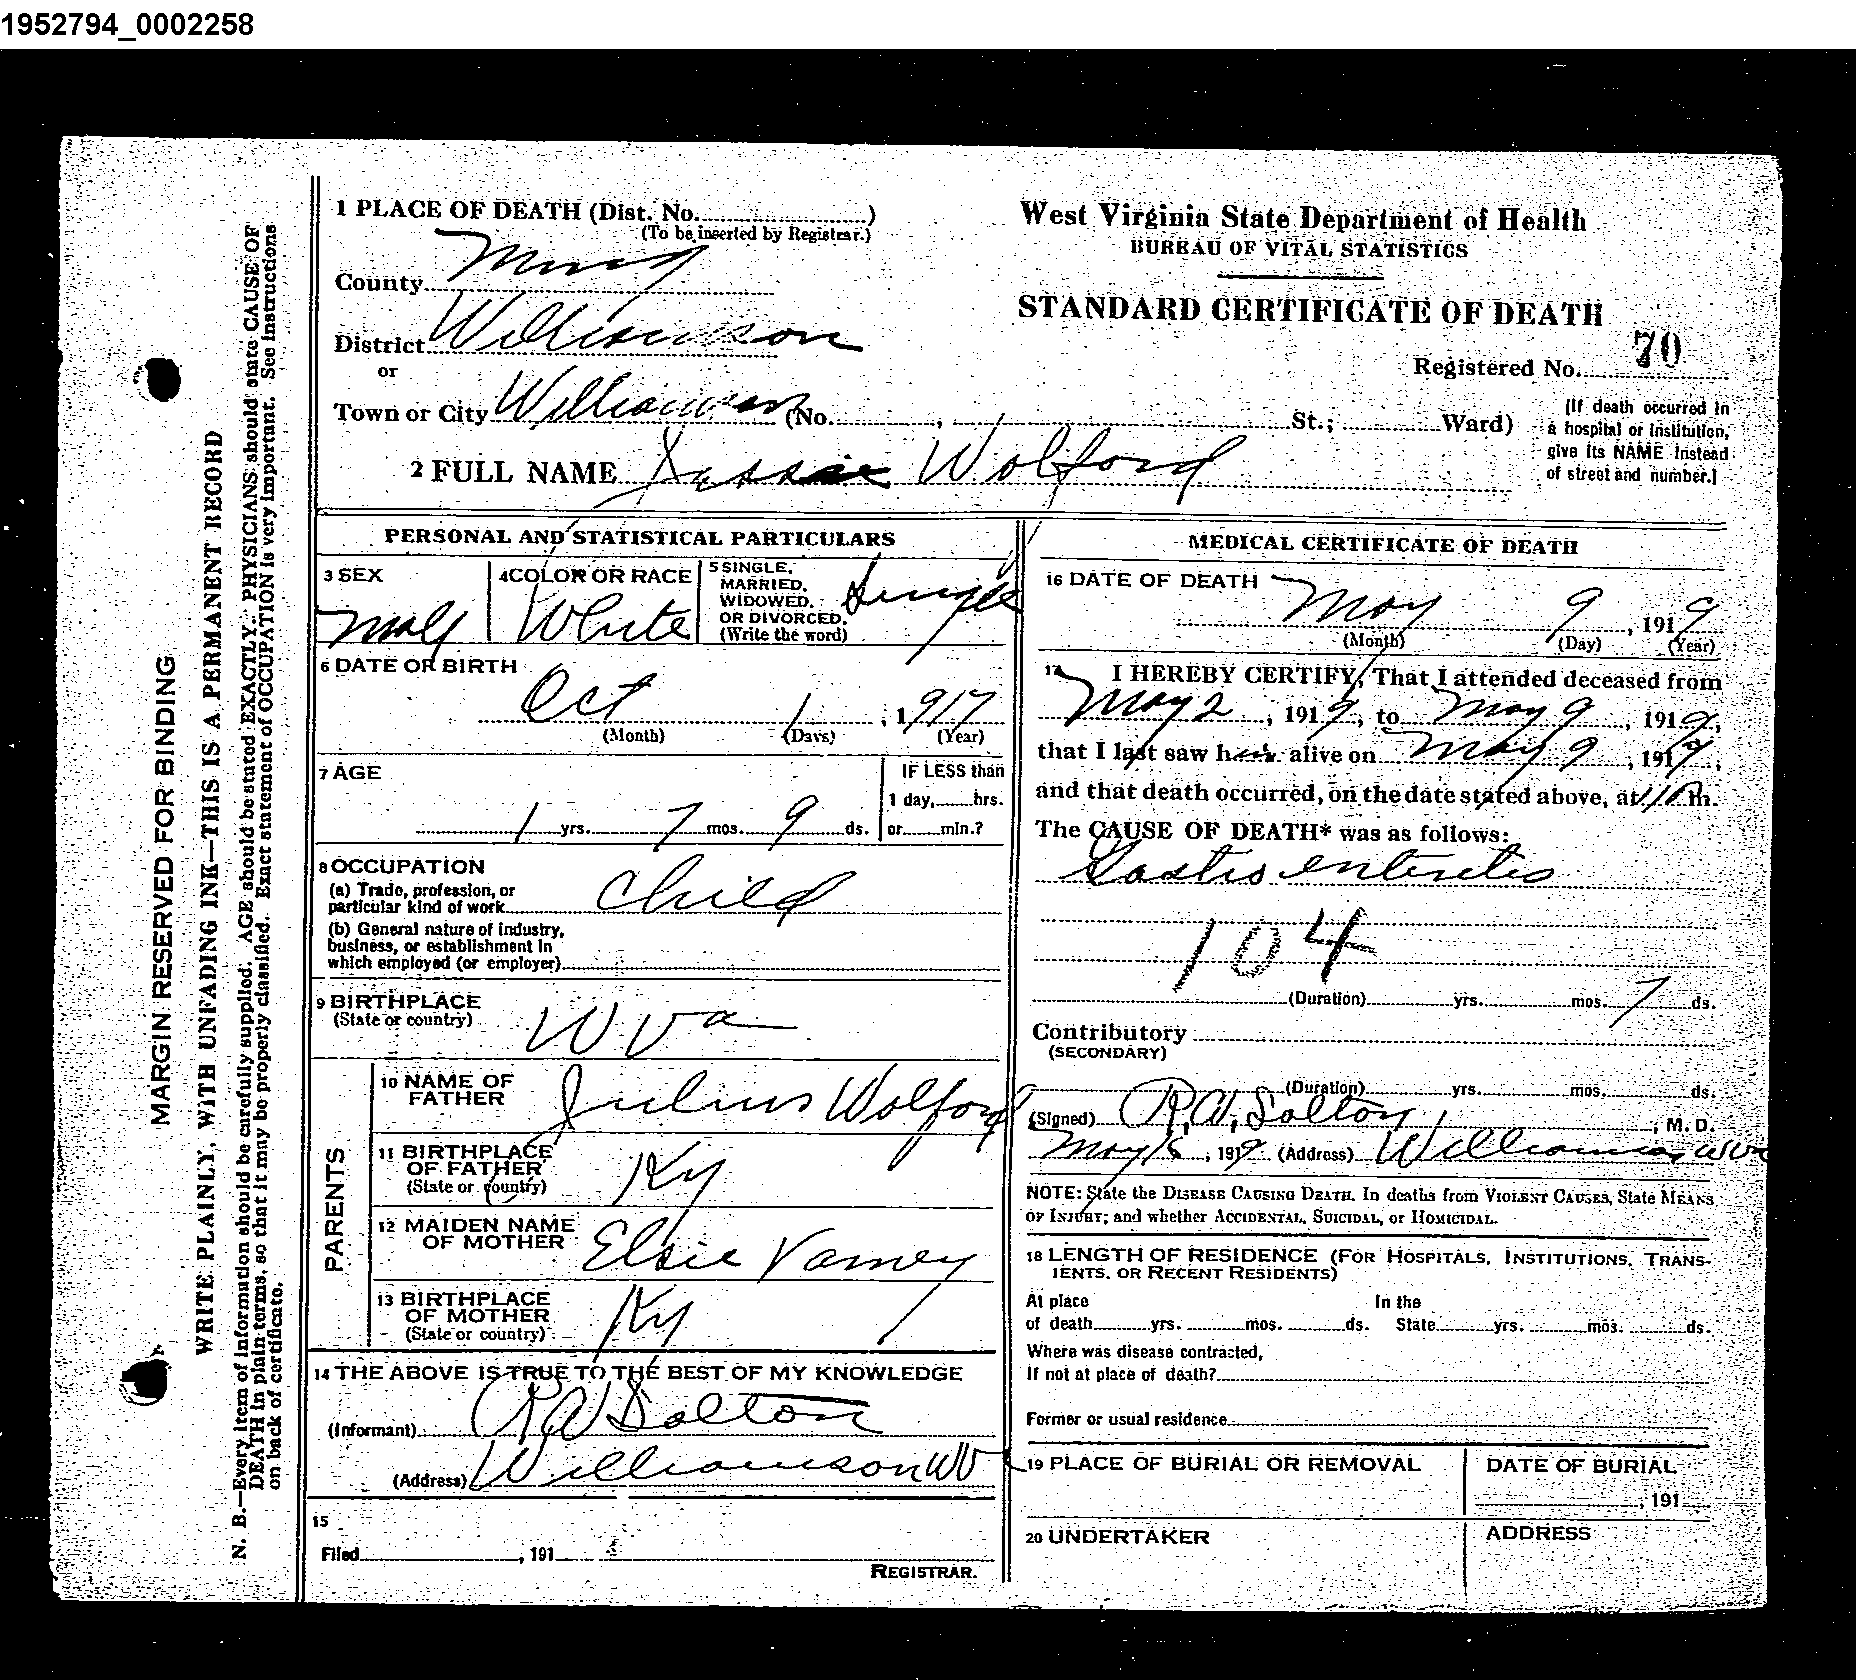 1952794_0002258
MARGIN RESERVED FOR BINDING
WRITE PLAINLY, WITH UNFADING INK—THIS IS A PERMANENT RECORD
N. B.—Every item of information should be carefully supplied. AGE should be stated EXACTLY. PHYSICIANS should state CAUSE OF
DEATH in plain terms, so that it may be properly classified. Exact statement of OCCUPATION is very important. See instructions
on back of certificate.
1 PLACE OF DEATH (Dist. No. )
(To be inserted by Registrar.)
County Mingo
District Williamson
or
Town or City Williamson (No. , St.; Ward)
2 FULL NAME Wolford
West Virginia State Department of Health
BUREAU OF VITAL STATISTICS
STANDARD CERTIFICATE OF DEATH
Registered No. 70
[If death occurred in
a hospital or institution,
give its NAME instead
of street and number.]
PERSONAL AND STATISTICAL PARTICULARS
3 SEX
Male
4 COLOR OR RACE
White
5 SINGLE,
MARRIED,
WIDOWED,
OR DIVORCED.
(Write the word)
Single
6 DATE OF BIRTH
Oct 1, 1917
(Month) (Days) (Year)
7 AGE
1 yrs. 7 mos. 9 ds.
IF LESS than
1 day, hrs.
or min.?
8 OCCUPATION
(a) Trade, profession, or
particular kind of work Child
(b) General nature of industry,
business, or establishment in
which employed (or employer)
9 BIRTHPLACE
(State or country) W Va
PARENTS
10 NAME OF
FATHER Julius Wolford
11 BIRTHPLACE
OF FATHER
(State or country) Ky
12 MAIDEN NAME
OF MOTHER Elsie Varney
13 BIRTHPLACE
OF MOTHER
(State or country) Ky
14 THE ABOVE IS TRUE TO THE BEST OF MY KNOWLEDGE
(Informant) R W Dalton
(Address) Williamson W V
15
Filed , 191
REGISTRAR.
MEDICAL CERTIFICATE OF DEATH
16 DATE OF DEATH
May 9, 1919
(Month) (Day) (Year)
17 I HEREBY CERTIFY, That I attended deceased from
May 2, 1919, to May 9, 1919,
that I last saw him alive on May 9, 1919,
and that death occurred, on the date stated above, at m.
The CAUSE OF DEATH* was as follows:
Gastro enteretis
104
(Duration) yrs. mos. 7 ds.
Contributory
(SECONDARY)
(Duration) yrs. mos. ds.
(Signed) R. W. Dalton, M. D.
May , 1919 (Address) Williamson W Va
NOTE: State the DISEASE CAUSING DEATH. In deaths from VIOLENT CAUSES, State MEANS
OF INJURY; and whether ACCIDENTAL, SUICIDAL, or HOMICIDAL.
18 LENGTH OF RESIDENCE (FOR HOSPITALS, INSTITUTIONS, TRANS-
IENTS, OR RECENT RESIDENTS)
At place In the
of death yrs. mos. ds. State yrs. mos. ds.
Where was disease contracted,
If not at place of death?
Former or usual residence
19 PLACE OF BURIAL OR REMOVAL
DATE OF BURIAL
, 191
20 UNDERTAKER
ADDRESS